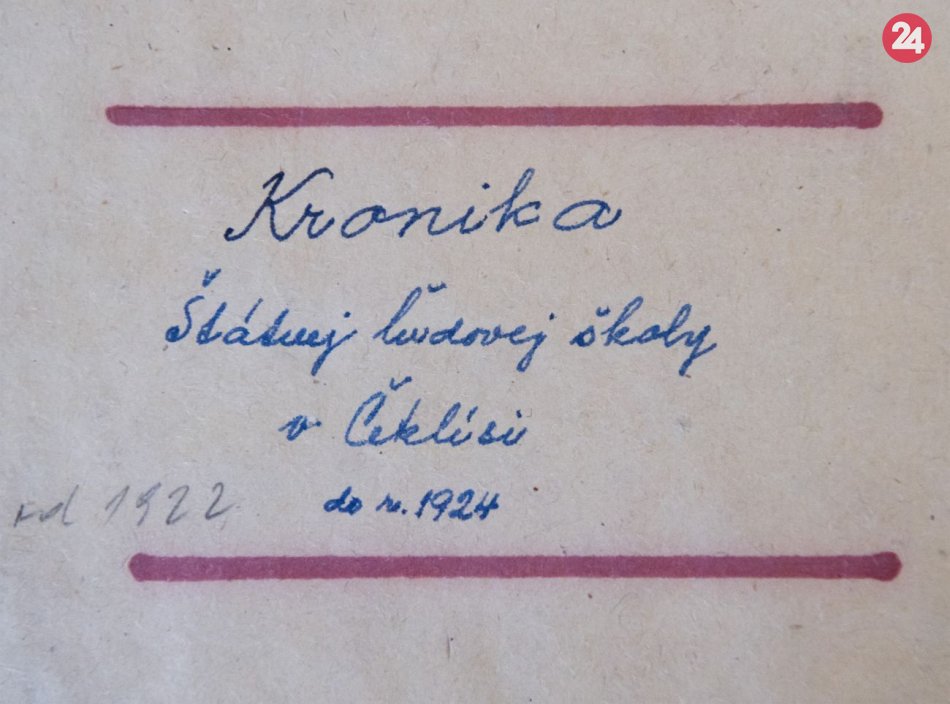 24
Kronika
Štátnej ľudovej školy
v Čeklísi
od 1922 do r. 1924